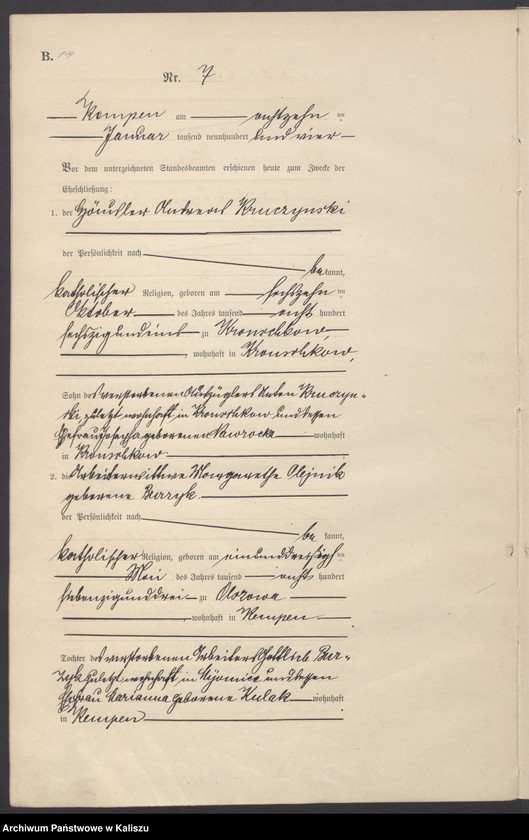 B. 14
Nr. 7.
Kempen am achtzehn ten
Januar tausend neunhundert und vier
Vor dem unterzeichneten Standesbeamten erschienen heute zum Zwecke der
Eheschließung:
1. der Häusler Andreas Kruczynski
der Persönlichkeit nach
be kannt,
katholischer Religion, geboren am sechszehn ten
Oktober des Jahres tausend acht hundert
sechszigundeins zu Kronschkow
, wohnhaft in Kronschkow,
Sohn des verstorbenen Auszüglers Kruczyn-
ski zuletzt wohnhaft in Kronschkow und dessen
Ehefrau Josepha geborenen Nawrocka wohnhaft
in Kronschkow.
2. die Arbeiterwittwe Margarethe Olejnik
geborene Burzyk.
der Persönlichkeit nach
be kannt,
katholischer Religion, geboren am einunddreißigs ten
Mai des Jahres tausend acht hundert
siebenzigunddrei zu Olszowa
, wohnhaft in Kempen
Tochter des verstorbenen Arbeiters Gottlieb Bur-
zyk zuletzt wohnhaft in und dessen
Ehefrau Marianna geborene Kulak wohnhaft
in Kempen
Archiwum Państwowe w Kaliszu